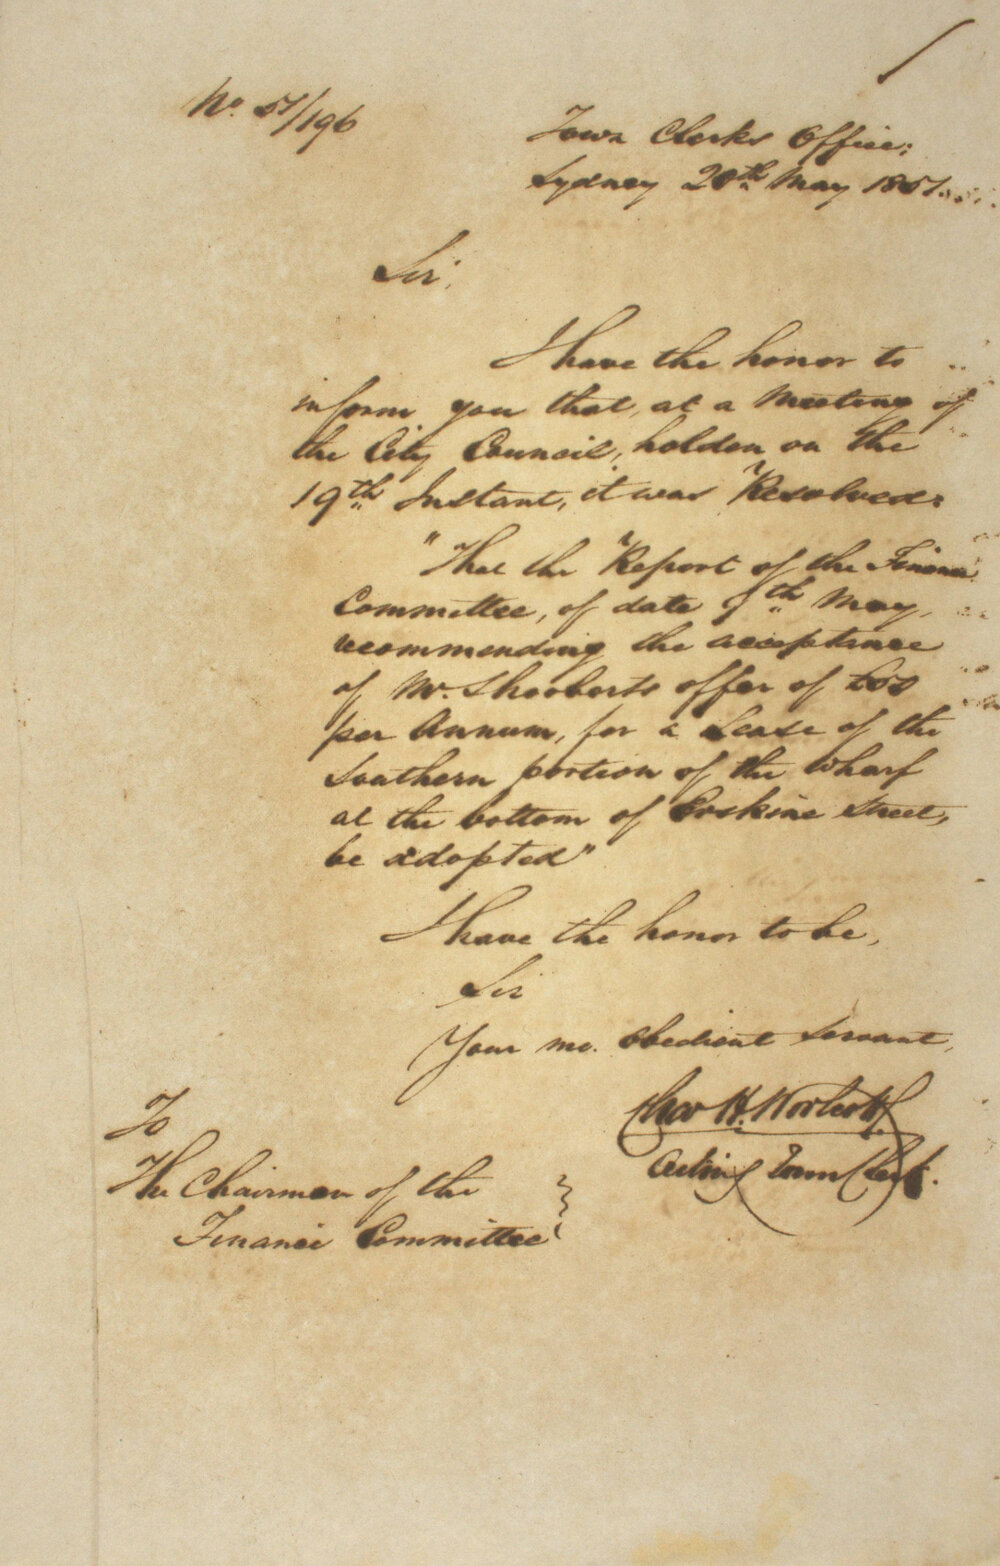 No. 51/196
Town Clerks Office;
Sydney 20th May 1851.
Sir,
I have the honor to
inform you that, at a Meeting of
the City Council, holden on the
19th Instant, it was Resolved:
"That the Report of the Finance
Committee, of date 9th May,
recommending the acceptance
of Mr. Shooberts offer of
per Annum, for a Lease of the
Southern portion of the Wharf
at the bottom of Erskine Street,
be adopted"
I have the honor to be,
Sir
Your mo. obedient Servant,
Chas H. Woolcott
Acting Town Clerk.
To
The Chairman of the
Finance Committee